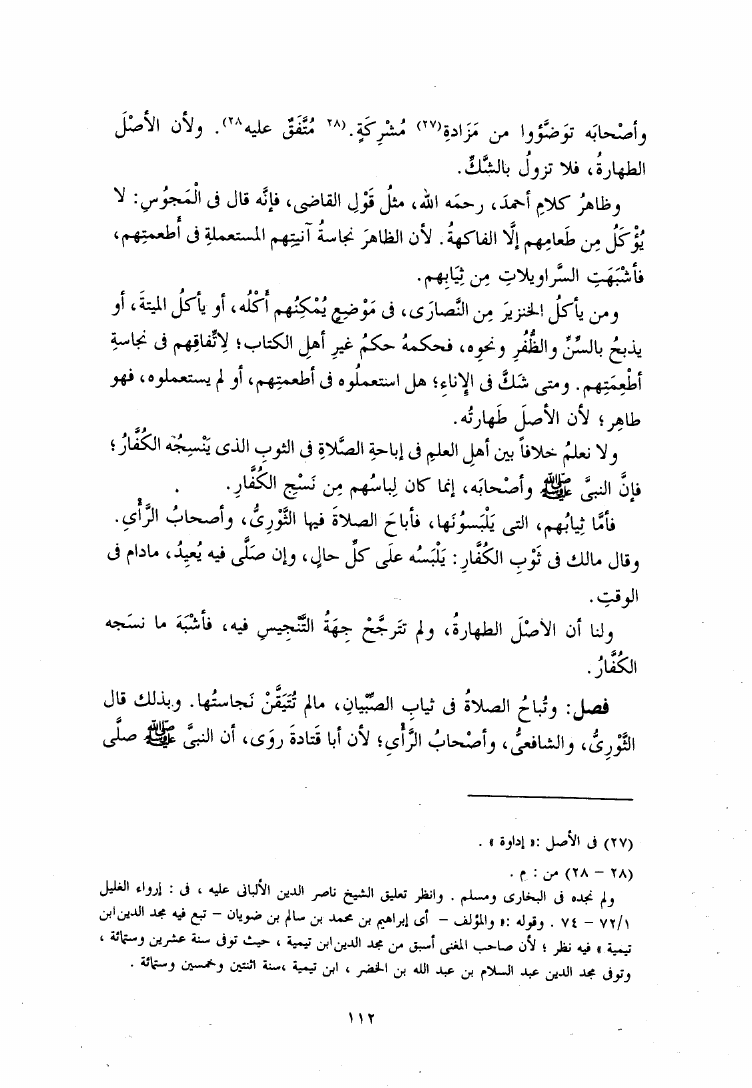 وأصْحابَه توَضَّؤوا من مَزَادةِ(٢٧) مُشْرِكَةٍ.(٢٨ مُتَّفَقٌ عليه٢٨). ولأن الأصْلَ
الطهارةُ، فلا تزولُ بالشَّكِّ.
وظاهرُ كلامِ أحمدَ، رحمَه الله، مثلُ قَوْلِ القاضى، فإنَّه قال فى الْمَجُوسِ: لا
يُؤْكَلُ مِن طَعامِهم إلَّا الفاكهةُ. لأن الظاهرَ نجاسةُ آنيتِهم المستعملةِ فى أطعمتِهم،
فأشْبَهَتِ السَّراوِيلاتِ مِن ثِيَابِهم.
ومن يأكلُ الخنزيرَ مِن النَّصارَى، فى مَوْضِعٍ يُمْكِنُهم أكْلُه، أو يأكلُ الميتةَ، أو
يذبحُ بالسِّنِّ والظُّفُرِ ونحوِه، فحكمهُ حكمُ غيرِ أهلِ الكتاب؛ لِاتِّفاقِهم فى نجاسةِ
أطْعِمَتِهم. ومتى شَكَّ فى الإِناءِ؛ هل استعملُوه فى أطعمتِهم، أو لم يستعملوه، فهو
طاهِر؛ لأن الأصلَ طَهارتُه.
ولا نعلمُ خلافاً بين أهلِ العلمِ فى إباحةِ الصَّلاةِ فى الثوبِ الذى يَنْسِجُه الكُفَّارُ؛
فإنَّ النبىَّ ﷺ وأصْحابَه، إنما كان لِباسُهم مِن نَسْجِ الكُفَّارِ.
فأمَّا ثِيابُهم، التى يَلْبَسونَها، فأباحَ الصلاةَ فيها الثَّوْرِىُّ، وأصحابُ الرَّأْىِ.
وقال مالك فى ثَوْبِ الكُفَّارِ: يَلْبَسُه علَى كلِّ حالٍ، وإن صَلَّى فيه يُعِيدُ، مادام فى
الوقتِ.
ولنا أن الأصْلَ الطهارةُ، ولم تَتَرجَّحْ جِهَةُ التَّنْجيسِ فيه، فأشْبَهَ ما نسَجه
الكُفَّارُ.
فصل: وتُباحُ الصلاةُ فى ثيابِ الصِّبْيانِ، مالم تُتَيَقَّنْ نَجاستُها. وبذلك قال
الثَّوْرِىُّ، والشافعىُّ، وأصْحابُ الرَّأْىِ؛ لأن أبا قَتادةَ روَى، أن النبىَّ ﷺ صلَّى
(٢٧) فى الأصل :« إداوة » .
(٢٨ – ٢٨) من : م .
ولم نجده فى البخارى ومسلم . وانظر تعليق الشيخ ناصر الدين الألبانى عليه ، فى : إرواء الغليل
٧٢/١ – ٧٤ . وقوله :« والمؤلف – أى إبراهيم بن محمد بن سالم بن ضويان – تبع فيه مجد الدين ابن
تيمية » فيه نظر ؛ لأن صاحب المغنى أسبق من مجد الدين ابن تيمية ، حيث توفى سنة عشرين وستمائة ،
وتوفى مجد الدين عبد السلام بن عبد الله بن الخضر ، ابن تيمية ،سنة اثنتين وخمسين وستمائة .
١١٢